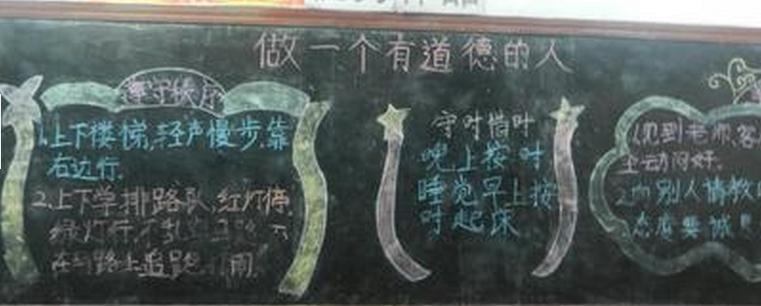 做一个有道德的人
遵守秩序
1.上下楼梯,轻声慢步,靠
右边行.
2.上下学排路队,红灯停,
绿灯行,不乱
在马路上追跑打闹.
守时惜时
晚上按时
睡觉早上按
时起床
1.见到老师、客
主动问好.
2.向别人请教
态度要诚